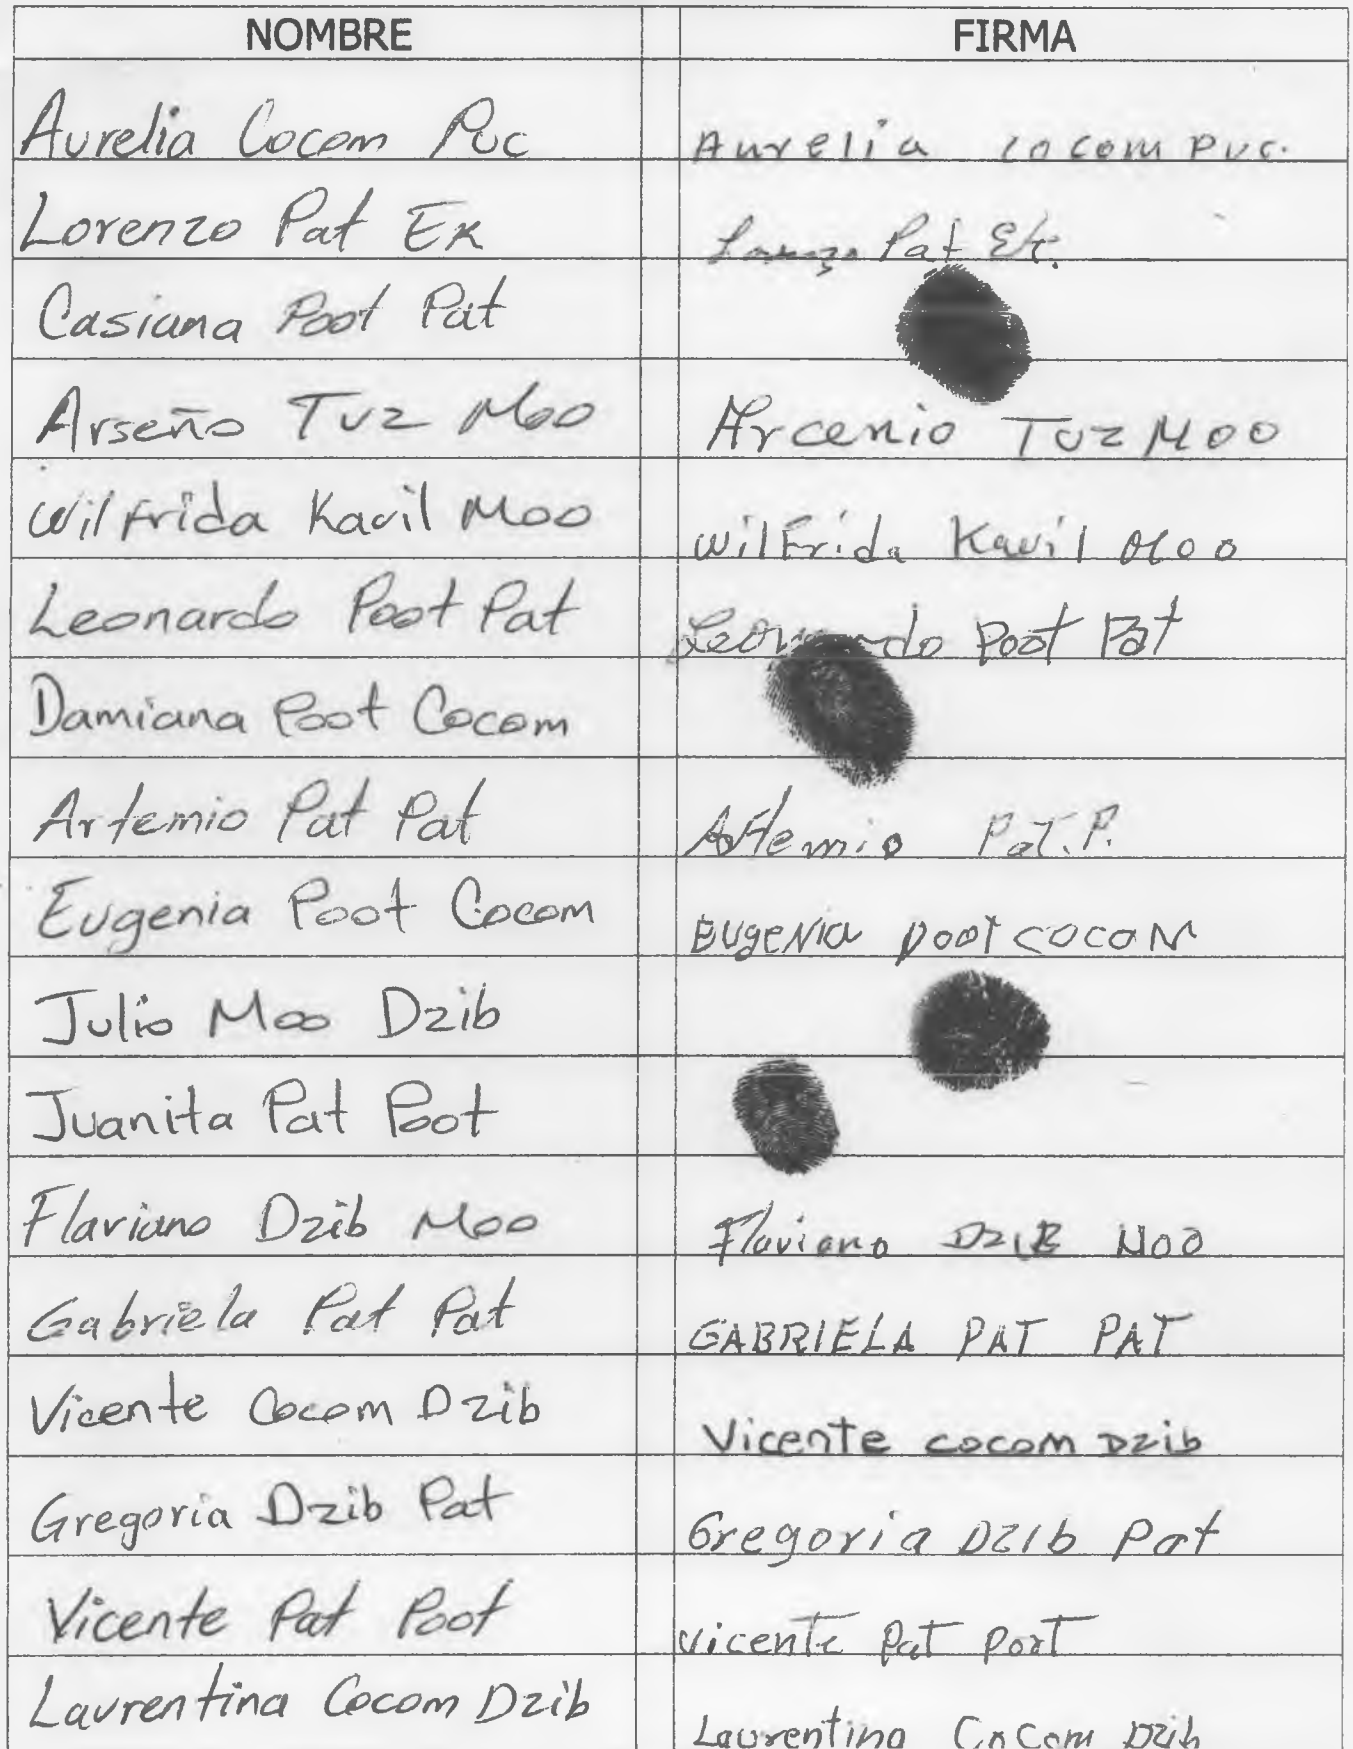 NOMBRE FIRMA
Aurelia Cocom Puc Aurelia cocom puc.
Lorenzo Pat Ek Lorenzo Pat Ek.
Casiana Poot Pat
Arseño Tuz Moo Arcenio Tuz Moo
Wilfrida Kauil Moo Wilfrida Kauil Moo
Leonardo Poot Pat Leonardo Poot Pat
Damiana Poot Cocom
Artemio Pat Pat Artemio Pat.P.
Eugenia Poot Cocom EUgeNia poot cocoM
Julio Moo Dzib
Juanita Pat Poot
Flaviano Dzib Moo Flaviano DziB Moo
Gabriela Pat Pat GABRIELA PAT PAT
Vicente Cocom Dzib Vicente cocom Dzib
Gregoria Dzib Pat Gregoria Dzib Pat
Vicente Pat Poot vicente Pat Poot
Laurentina Cocom Dzib Laurentina CoCom Dzib